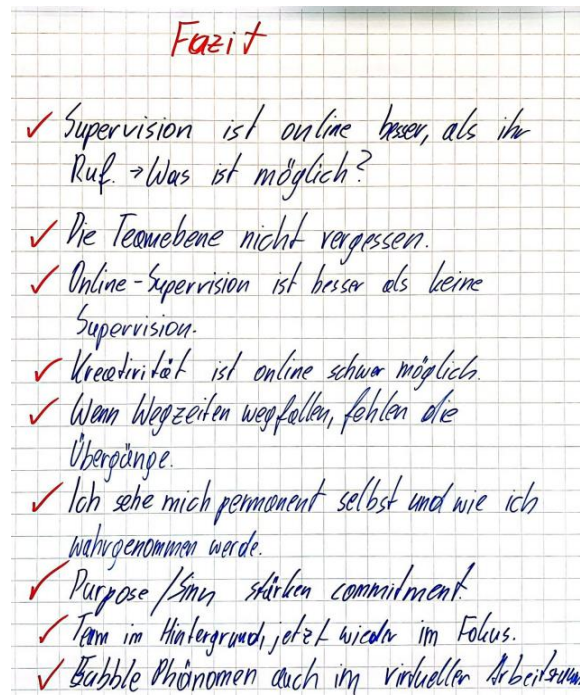 Fazit
✓ Supervision ist online besser, als ihr
Ruf. → Was ist möglich?
✓ Die Teamebene nicht vergessen.
✓ Online-Supervision ist besser als keine
Supervision.
✓ Kreativität ist online schwer möglich.
✓ Wenn Wegzeiten wegfallen, fehlen die
Übergänge.
✓ Ich sehe mich permanent selbst und wie ich
wahrgenommen werde.
✓ Purpose/Sinn stärken commitment.
✓ Team im Hintergrund, jetzt wieder im Fokus.
✓ Bubble Phänomen auch im virtueller